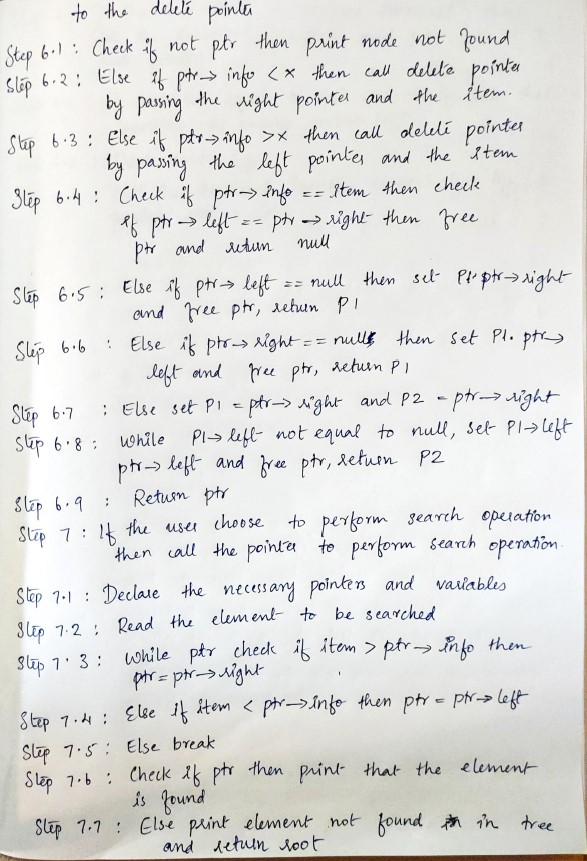 to the delete pointer
Step 6.1 : Check if not ptr then print node not found
Step 6.2 : Else if ptr→ info < x then call delete pointer
by passing the right pointer and the item.
Step 6.3 : Else if ptr→info >x then call delete pointer
by passing the left pointer and the item
Step 6.4 : Check if ptr→info == item then check
if ptr → left == ptr → right then free
ptr and return null
Step 6.5 : Else if ptr→ left == null then set P1. ptr→right
and free ptr, return P1
Step 6.6 : Else if ptr→ right == null then set P1. ptr→
left and free ptr, return P1
Step 6.7 : Else set P1 = ptr→ right and P2 = ptr→ right
Step 6.8 : while P1→ left not equal to null, set P1→left
ptr→ left and free ptr, return P2
Step 6.9 : Return ptr
Step 7 : If the user choose to perform search operation
then call the pointer to perform search operation.
Step 7.1 : Declare the necessary pointers and variables
Step 7.2 : Read the element to be searched
Step 7.3 : While ptr check if item > ptr→ info then
ptr = ptr→ right
Step 7.4 : Else if item < ptr→info then ptr = ptr→ left
Step 7.5 : Else break
Step 7.6 : Check if ptr then print that the element
is found
Step 7.7 : Else print element not found in tree
and return root